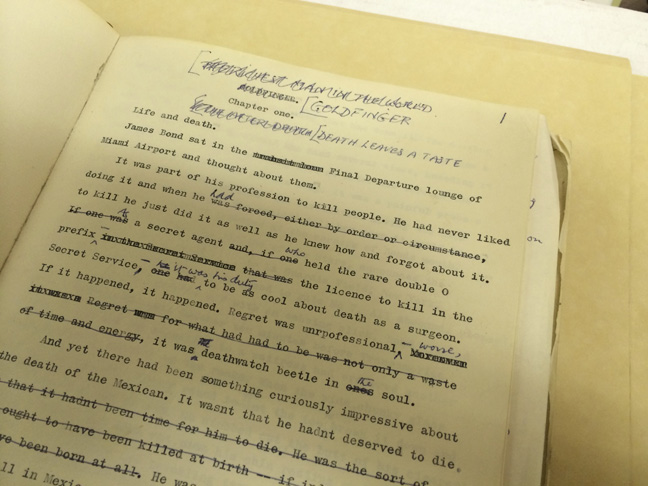 THE RICHEST MAN IN THE WORLD
GOLDFINGER. [GOLDFINGER 1
Chapter one.
[DEATH LEAVES A TASTE
Life and death.
James Bond sat in the Final Departure lounge of
Miami Airport and thought about them.
It was part of his profession to kill people. He had never liked
doing it and when he had was forced, either by order or circumstance,
to kill he just did it as well as he knew how and forgot about it.
If one was As a secret agent and, if one who held the rare double O
prefix – in the Secret Service that was the licence to kill in the
Secret Service, – one had it was his duty to be as cool about death as a surgeon.
If it happened, it happened. Regret was unrpofessional – worse, Moreover
it was a Regret was for what had had to be was not only a waste
of time and energy, it was a deathwatch beetle in ones the soul.
And yet there had been something curiously impressive about
the death of the Mexican. It wasnt that he hadnt deserved to die.
that it hadnt been time for him to die. He was the sort of
ought to have been killed at birth -- if
ve been born at all. He was
ll in Mexi